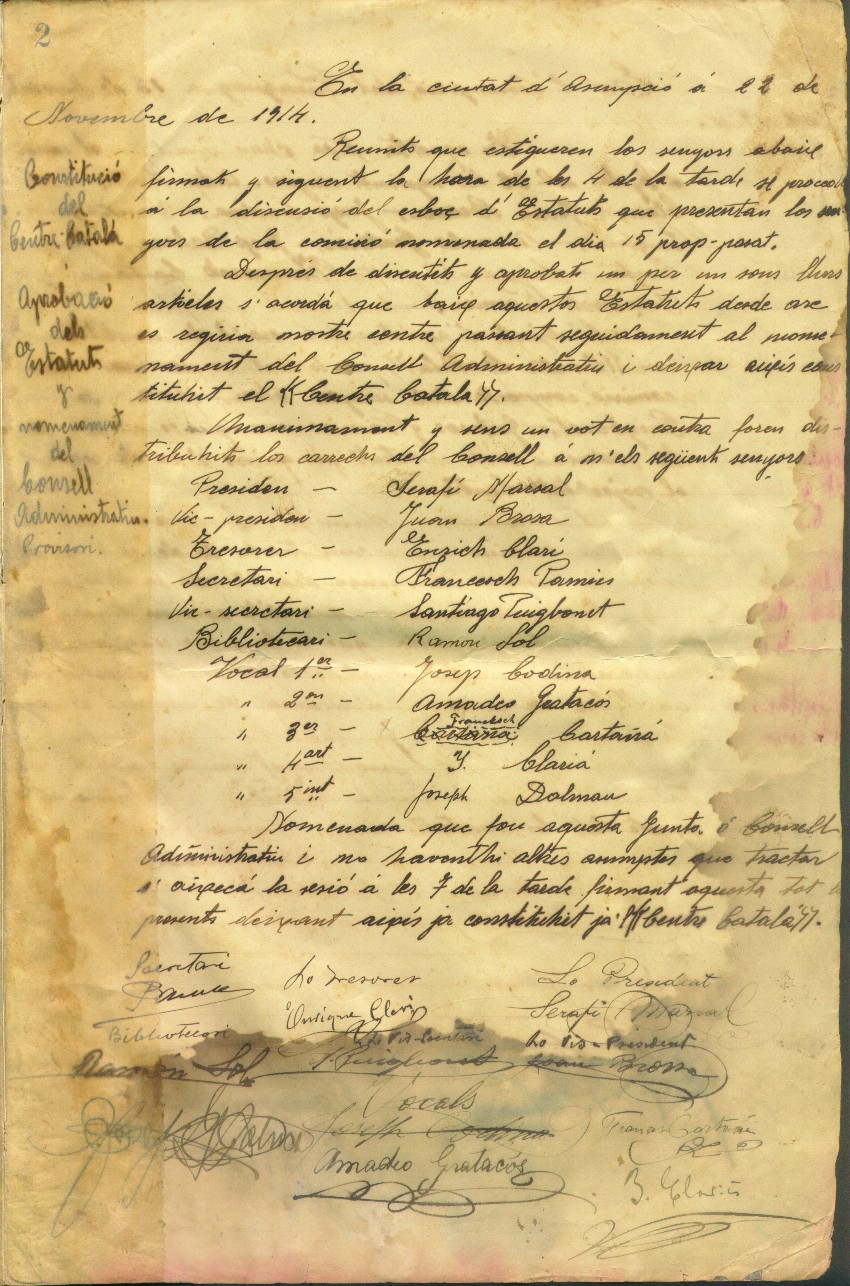 2
En la ciutat d' Asumpció á 22 de
Novembre de 1914.
Reunits que estigueren los senyors abaix
firmats y siguent la hora de les 4 de la tarde se procedí
á la discusió del esboç d' Estatuts que presentan los sen-
yors de la comisió nomenada el dia 15 prop-pasat.
Després de discutits y aprobats un per un sons llurs
articles s' acordá que baix aquestos Estatuts desde are
es regiria nostre centre passant seguidament al nome-
nament del Consell Administratiu i deixar aixís cons
tituhit el "Centre Catala".
Unanimament y sens un vot en contra foren dis-
tribuhits los carrechs del Consell á n'els següent senyors
Presiden — Serafí Marsal
Vic-presiden — Juan Brosa
Tresorer — Enrich Clari
Secretari — Francesch Pamies
Vic-secretari — Santiago Puigbonet
Bibliotecari — Ramon Sol
Vocal 1er — Josep Codina
" 2on — Amadeo Gratacós
" 3er — Francesch Cartañá
" 4art — Y. Clariá
" 5int — Joseph Dalmau
Nomenada que fou aquesta Junta ó Consell
Administratiu i no haventhi altres asumptes que tractar
s' aixecá la sesió á les 7 de la tarde firmant aquesta tot
presents deixant aixís ja constituhit ja "Centre Catalá".
Constitució
del
Centre Catalá
Aprobació
dels
Estatuts
y
nomenament
del
Consell
Administratiu.
Provisori.
Secretari Lo Tresorer Lo President
Enrique Clari Serafí Marsal
Bibliotecari Lo Vis-Secretari Lo Vis-President
Ramón Sol Puigbonet Joan Brossa
Vocals
Joseph Dalmau Joseph Codina Frances Cartañá
Amadeo Gratacós